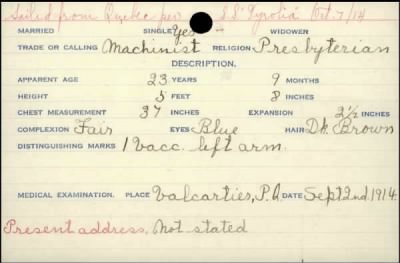 Sailed from Quebec per S.S. "Tyrolia" Oct. 7/14
MARRIED SINGLE Yes WIDOWER
TRADE OR CALLING Machinist RELIGION Presbyterian
DESCRIPTION.
APPARENT AGE 23 YEARS 9 MONTHS
HEIGHT 5 FEET 8 INCHES
CHEST MEASUREMENT 37 INCHES EXPANSION 2½ INCHES
COMPLEXION Fair EYES Blue HAIR Dk. Brown
DISTINGUISHING MARKS 1 Vacc. left arm.
MEDICAL EXAMINATION. PLACE Valcartier, P.Q. DATE Sept 2nd. 1914.
Present address, Not stated